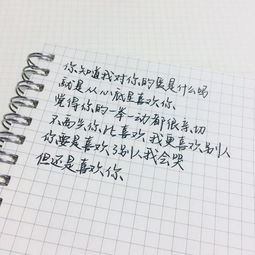 你知道我对你的爱是什么吗
就是从心底里喜欢你
觉得你的一举一动都很亲切
不两失你 比喜欢 我更喜欢别人
你要是喜欢了别人我会哭
但还是喜欢你